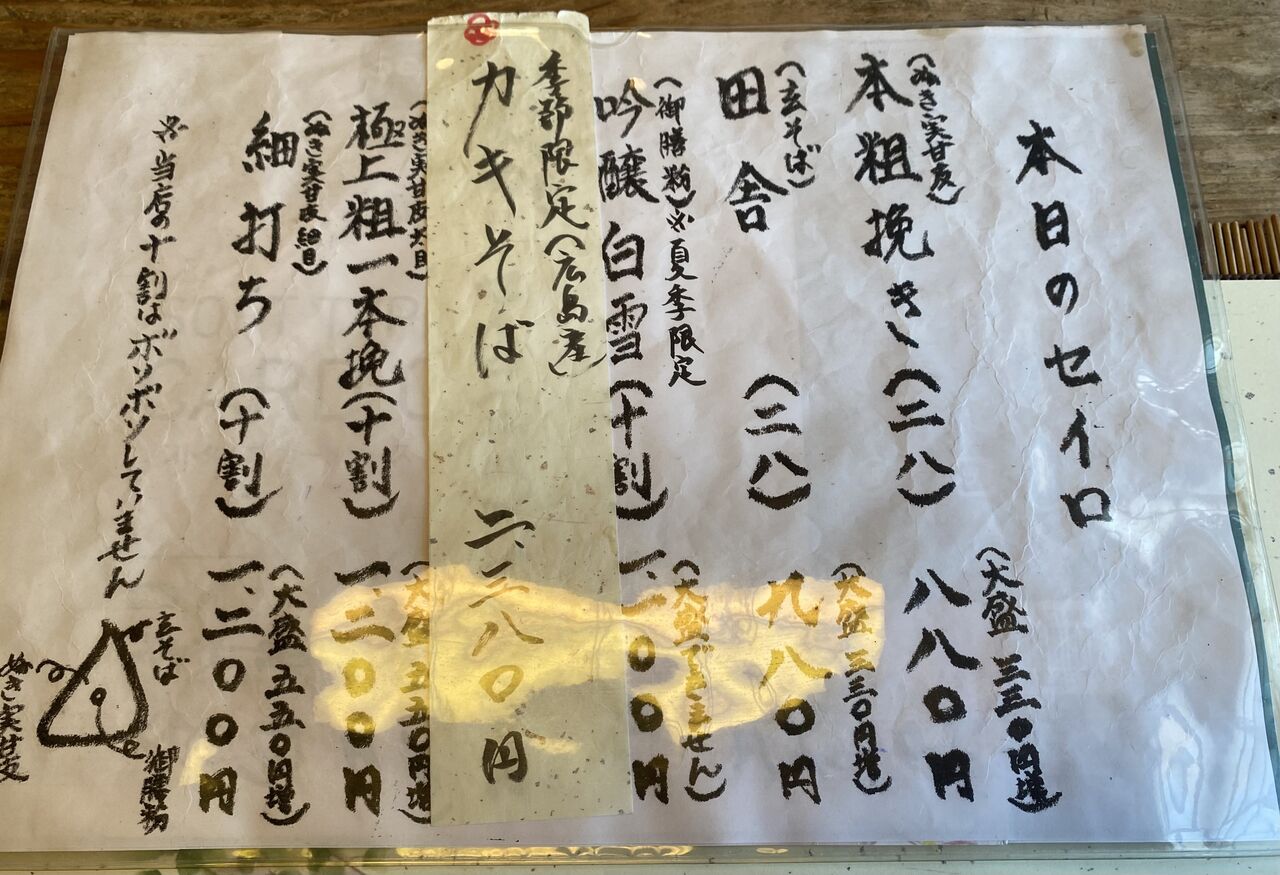 本日のセイロ
(ぬき実甘皮)
本粗挽き(二八)
(大盛 三三〇円増)
八八〇円
(玄そば)
田舎 (二八)
(大盛 三三〇円増)
九八〇円
(御膳粉)※夏季限定
吟醸白雪(十割)
(大盛できません)
〇〇円
季節限定(広島産)
カキそば 二、二八〇円
ぬき実甘皮大目)
極上粗一本挽(十割)
(大盛 五五〇円増)
一、二〇〇円
(ぬき実甘皮細目)
細打ち (十割)
(大盛 五五〇円増)
一、二〇〇円
※当店の十割はボソボソしていません
玄そば
御膳粉
ぬき実甘皮